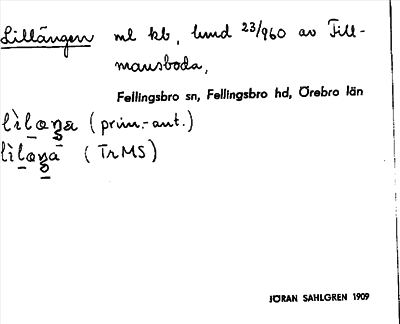 Lillängen ml kb, lund 23/960 av Till-
mansboda,
Fellingsbro sn, Fellingsbro hd, Örebro län
(prim.-ant.)
(TrMS)
JÖRAN SAHLGREN 1909